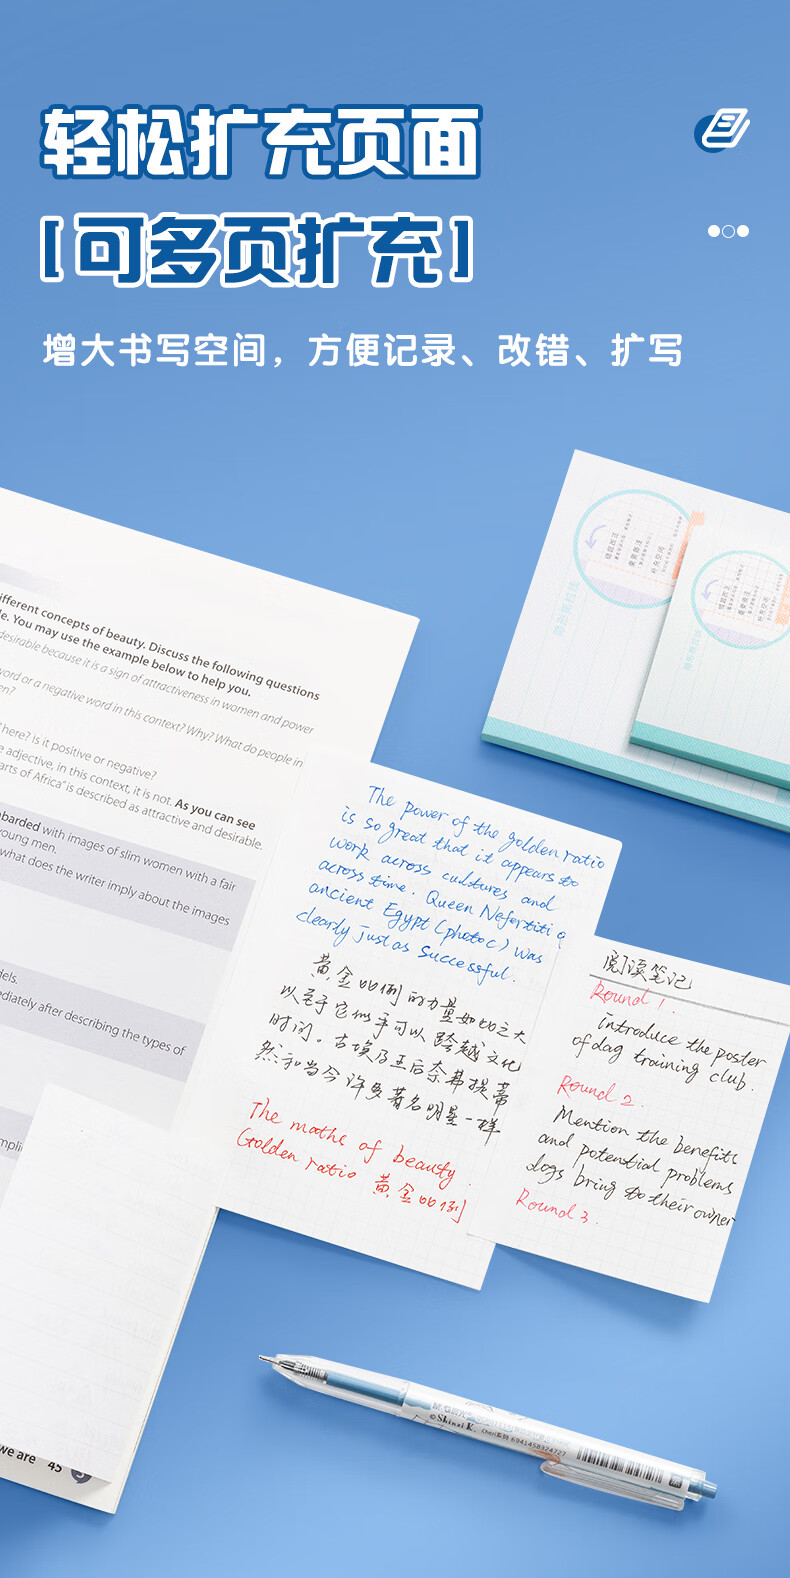 轻松扩充页面
[可多页扩充]
增大书写空间，方便记录、改错、扩写
ifferent concepts of beauty. Discuss the following questions
le. You may use the example below to help you.
desirable because it is a sign of attractiveness in women and power
word or a negative word in this context? Why? What do people in
en?
here? Is it positive or negative?
e adjective, in this context, it is not. As you can see
arts of Africa" is described as attractive and desirable.
mbarded with images of slim women with a fair
young men.
what does the writer imply about the images
dels.
mediately after describing the types of
mpli
we are 45
The power of the golden ratio
is so great that it appears to
work across cultures and
across time. Queen Nefertiti o
ancient Egypt (photo c) was
clearly just as successful.
黄金比例的力量如此之大
以至于它似乎可以跨越文化
时间。古埃及王后奈弗提蒂
然和当今许多著名明星一样
The maths of beauty.
Golden ratio 黄金比例
阅读笔记
Round 1.
introduce the poster
of dog training club.
Round 2.
Mention the benefits
and potential problems
dogs bring to their owner
Round 3.
错题改注
重要备注
补充空间
错题改注
重要备注
补充空间
©Shinzi K.
6941458324727